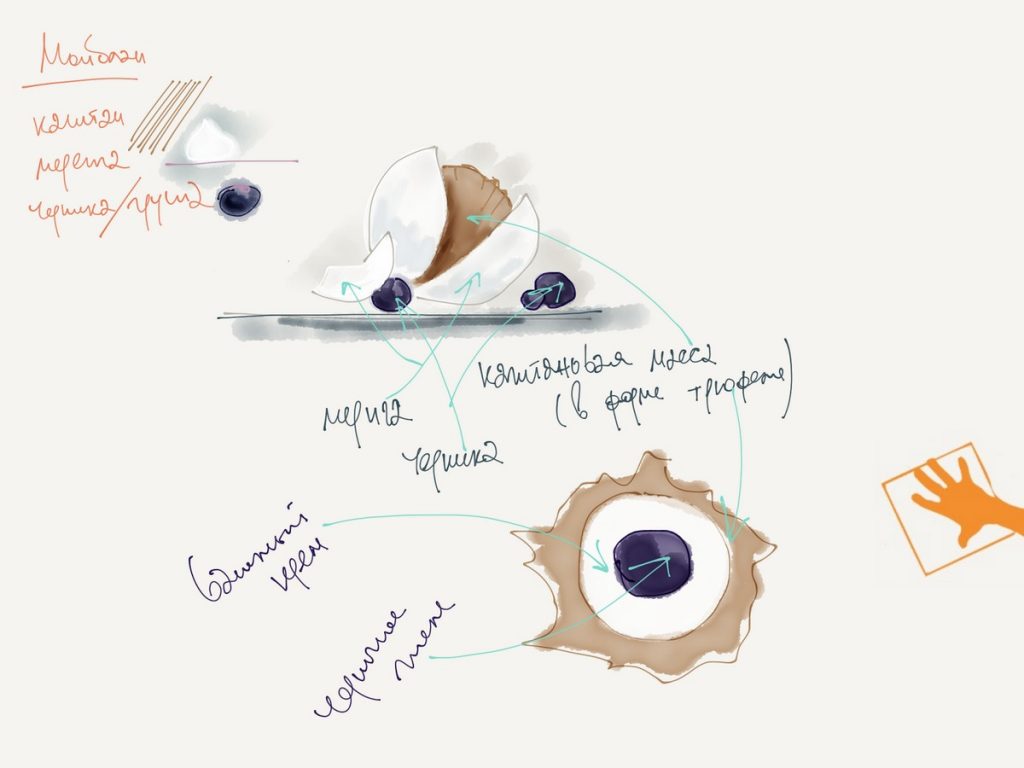 Монблан
каштан
меренга
черника/груша
каштановая масса
(в форме трюфеля)
меренга
черника
ванильный
крем
черничное
желе